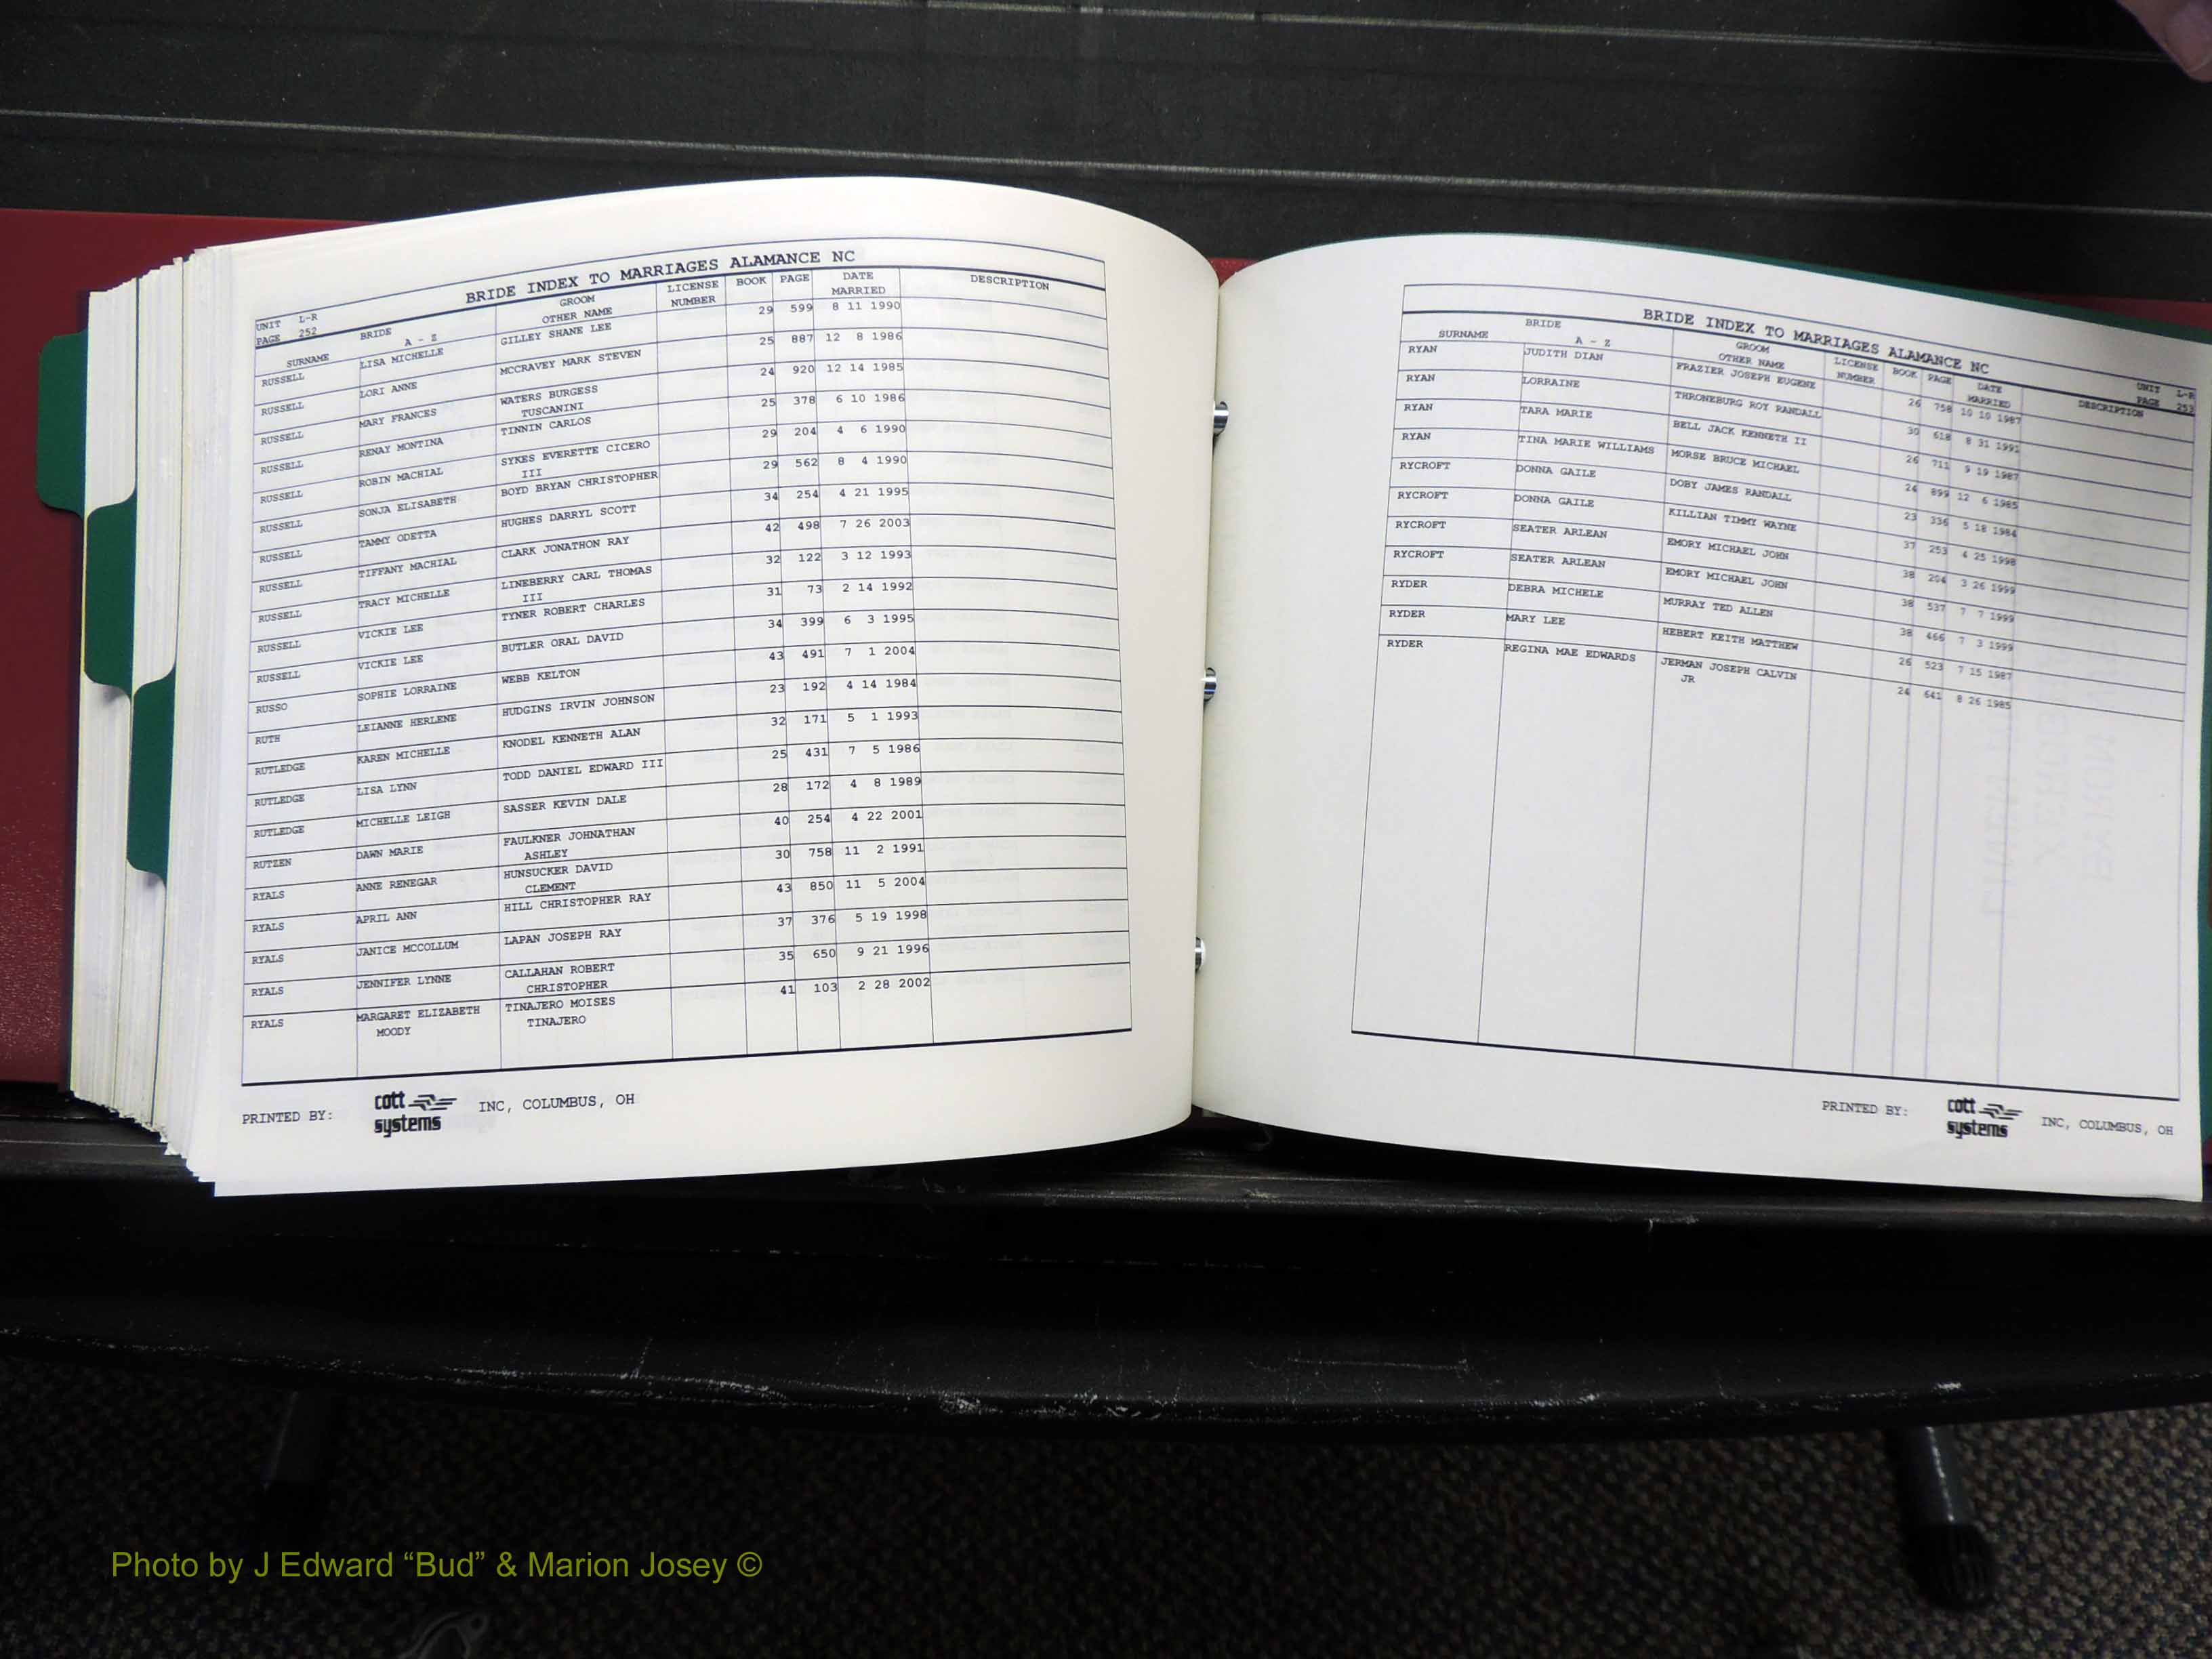 BRIDE INDEX TO MARRIAGES ALAMANCE NC
UNIT L-R
PAGE 252
SURNAME BRIDE A - Z GROOM OTHER NAME LICENSE NUMBER BOOK PAGE DATE MARRIED DESCRIPTION
RUSSELL LISA MICHELLE GILLEY SHANE LEE 29 599 8 11 1990
RUSSELL LORI ANNE MCCRAVEY MARK STEVEN 25 887 12 8 1986
RUSSELL MARY FRANCES WATERS BURGESS 24 920 12 14 1985
TUSCANINI
RUSSELL RENAY MONTINA TINNIN CARLOS 25 378 6 10 1986
RUSSELL ROBIN MACHIAL SYKES EVERETTE CICERO 29 204 4 6 1990
III
RUSSELL SONJA ELISABETH BOYD BRYAN CHRISTOPHER 29 562 8 4 1990
RUSSELL TAMMY ODETTA HUGHES DARRYL SCOTT 34 254 4 21 1995
RUSSELL TIFFANY MACHIAL CLARK JONATHON RAY 42 498 7 26 2003
RUSSELL TRACY MICHELLE LINEBERRY CARL THOMAS 32 122 3 12 1993
III
RUSSELL VICKIE LEE TYNER ROBERT CHARLES 31 73 2 14 1992
RUSSELL VICKIE LEE BUTLER ORAL DAVID 34 399 6 3 1995
RUSSO SOPHIE LORRAINE WEBB KELTON 43 491 7 1 2004
RUTH LEIANNE HERLENE HUDGINS IRVIN JOHNSON 23 192 4 14 1984
RUTLEDGE KAREN MICHELLE KNODEL KENNETH ALAN 32 171 5 1 1993
RUTLEDGE LISA LYNN TODD DANIEL EDWARD III 25 431 7 5 1986
RUTLEDGE MICHELLE LEIGH SASSER KEVIN DALE 28 172 4 8 1989
RUTZEN DAWN MARIE FAULKNER JOHNATHAN 40 254 4 22 2001
ASHLEY
RYALS ANNE RENEGAR HUNSUCKER DAVID 30 758 11 2 1991
CLEMENT
RYALS APRIL ANN HILL CHRISTOPHER RAY 43 850 11 5 2004
RYALS JANICE MCCOLLUM LAPAN JOSEPH RAY 37 376 5 19 1998
RYALS JENNIFER LYNNE CALLAHAN ROBERT 35 650 9 21 1996
CHRISTOPHER
RYALS MARGARET ELIZABETH TINAJERO MOISES 41 103 2 28 2002
MOODY TINAJERO
PRINTED BY: cott systems INC, COLUMBUS, OH
BRIDE INDEX TO MARRIAGES ALAMANCE NC
UNIT L-R
PAGE 253
SURNAME BRIDE A - Z GROOM OTHER NAME LICENSE NUMBER BOOK PAGE DATE MARRIED DESCRIPTION
RYAN JUDITH DIAN FRAZIER JOSEPH EUGENE 26 758 10 10 1987
RYAN LORRAINE THRONEBURG ROY RANDALL 30 618 8 31 1991
RYAN TARA MARIE BELL JACK KENNETH II 26 711 9 19 1987
RYAN TINA MARIE WILLIAMS MORSE BRUCE MICHAEL 24 899 12 6 1985
RYCROFT DONNA GAILE DOBY JAMES RANDALL 23 336 5 18 1984
RYCROFT DONNA GAILE KILLIAN TIMMY WAYNE 37 253 4 25 1998
RYCROFT SEATER ARLEAN EMORY MICHAEL JOHN 38 204 3 26 1999
RYCROFT SEATER ARLEAN EMORY MICHAEL JOHN 38 537 7 7 1999
RYDER DEBRA MICHELE MURRAY TED ALLEN 38 466 7 3 1999
RYDER MARY LEE HEBERT KEITH MATTHEW 26 523 7 15 1987
RYDER REGINA MAE EDWARDS JERMAN JOSEPH CALVIN 24 641 8 26 1985
JR
PRINTED BY: cott systems INC, COLUMBUS, OH
Photo by J Edward “Bud” & Marion Josey ©